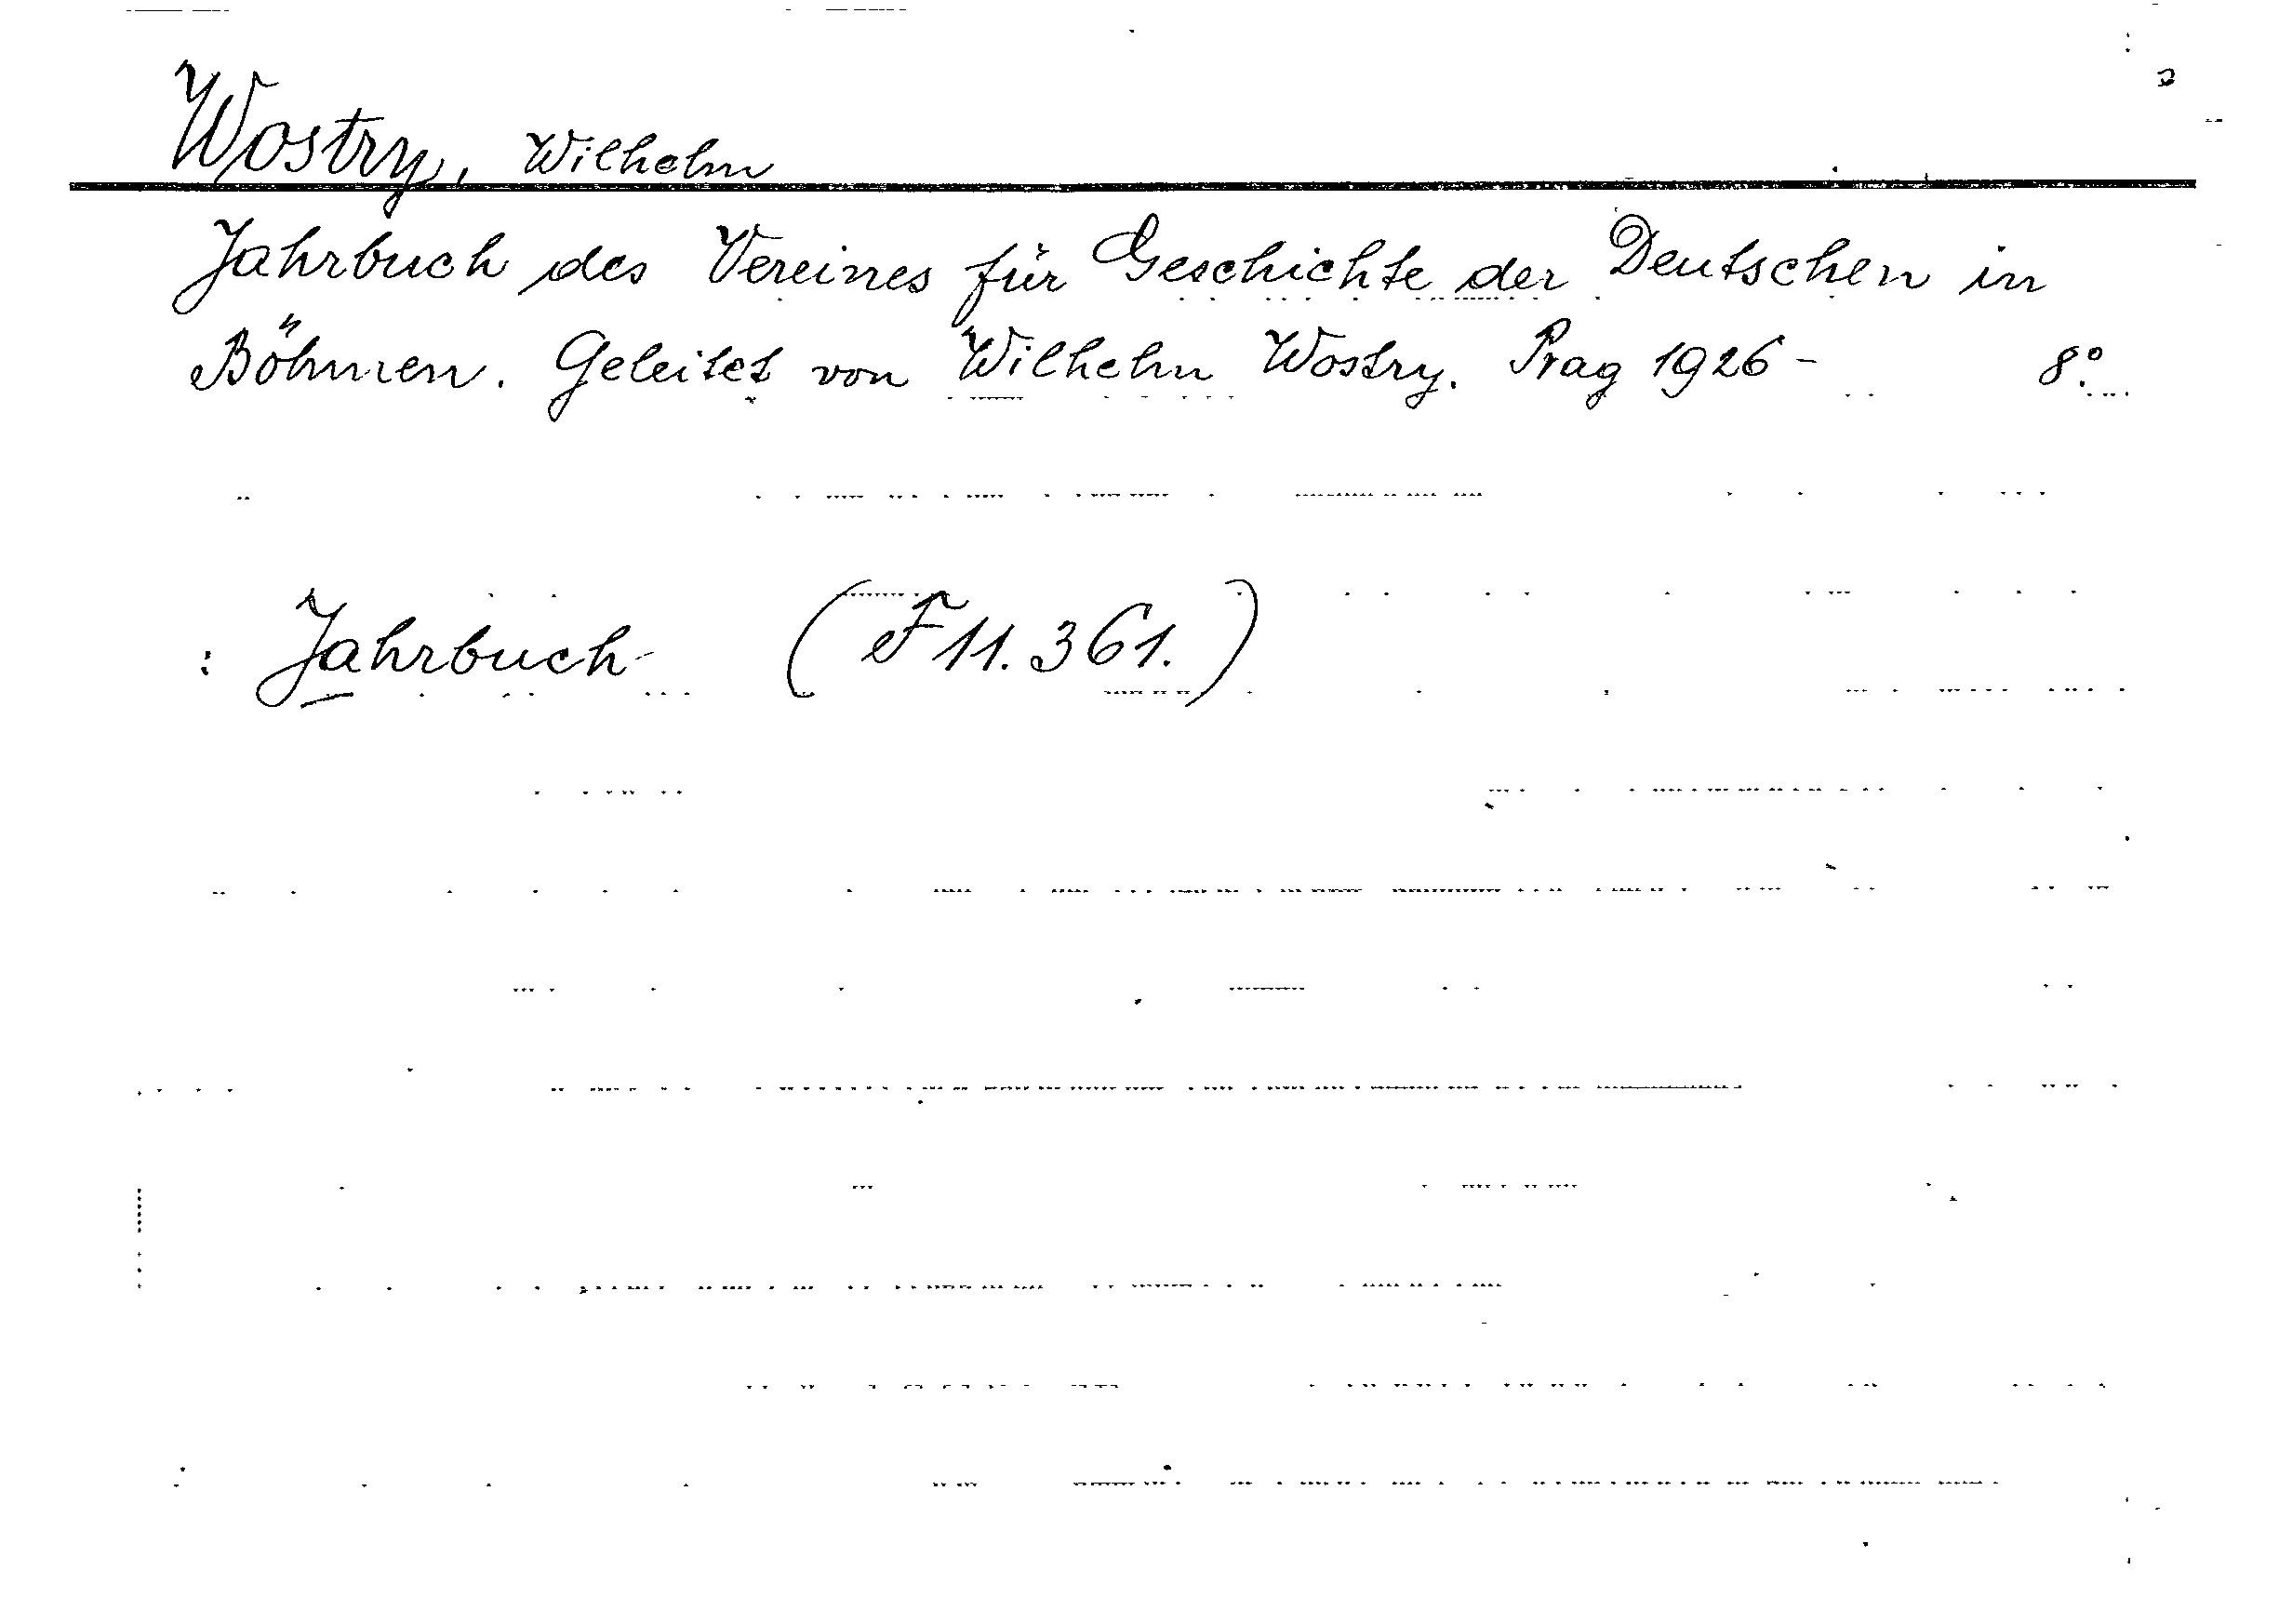 Wostry, Wilhelm
Jahrbuch des Vereines für Geschichte der Deutschen in
Böhmen. Geleitet von Wilhelm Wostry. Prag 1926 - 8º.
: Jahrbuch (F 11.361.)